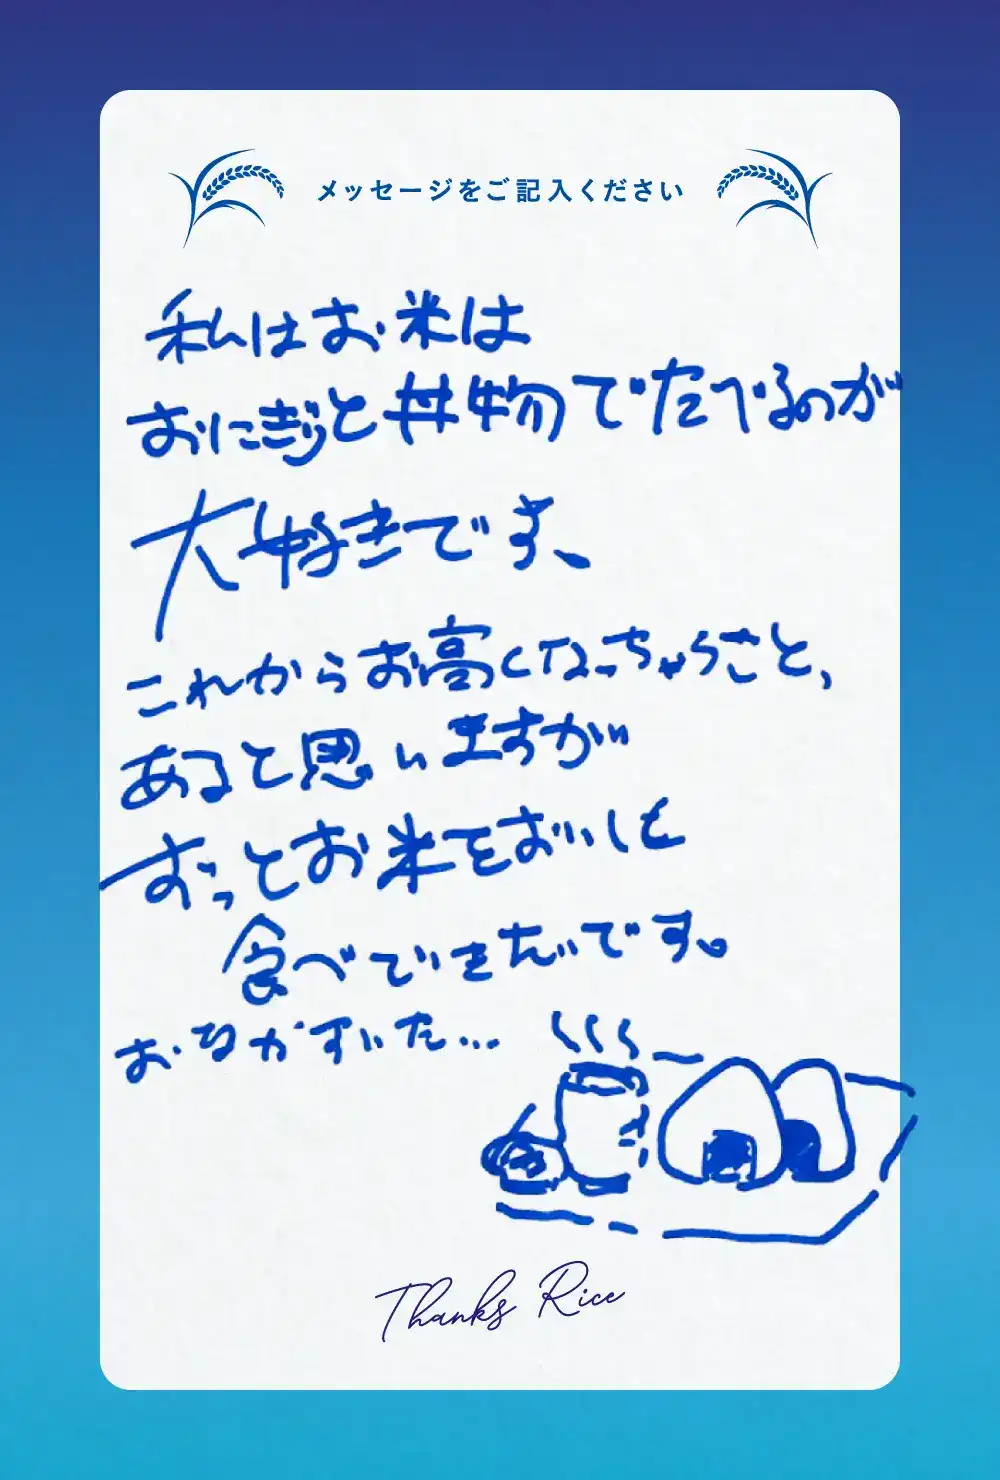 メッセージをご記入ください
私はお米は
おにぎりと丼物でたべるのが
大好きです、
これからお高くなっちゃうこと、
あると思いますが
ずっとお米をおいしく
食べていきたいです。
おなかすいた…
Thanks Rice